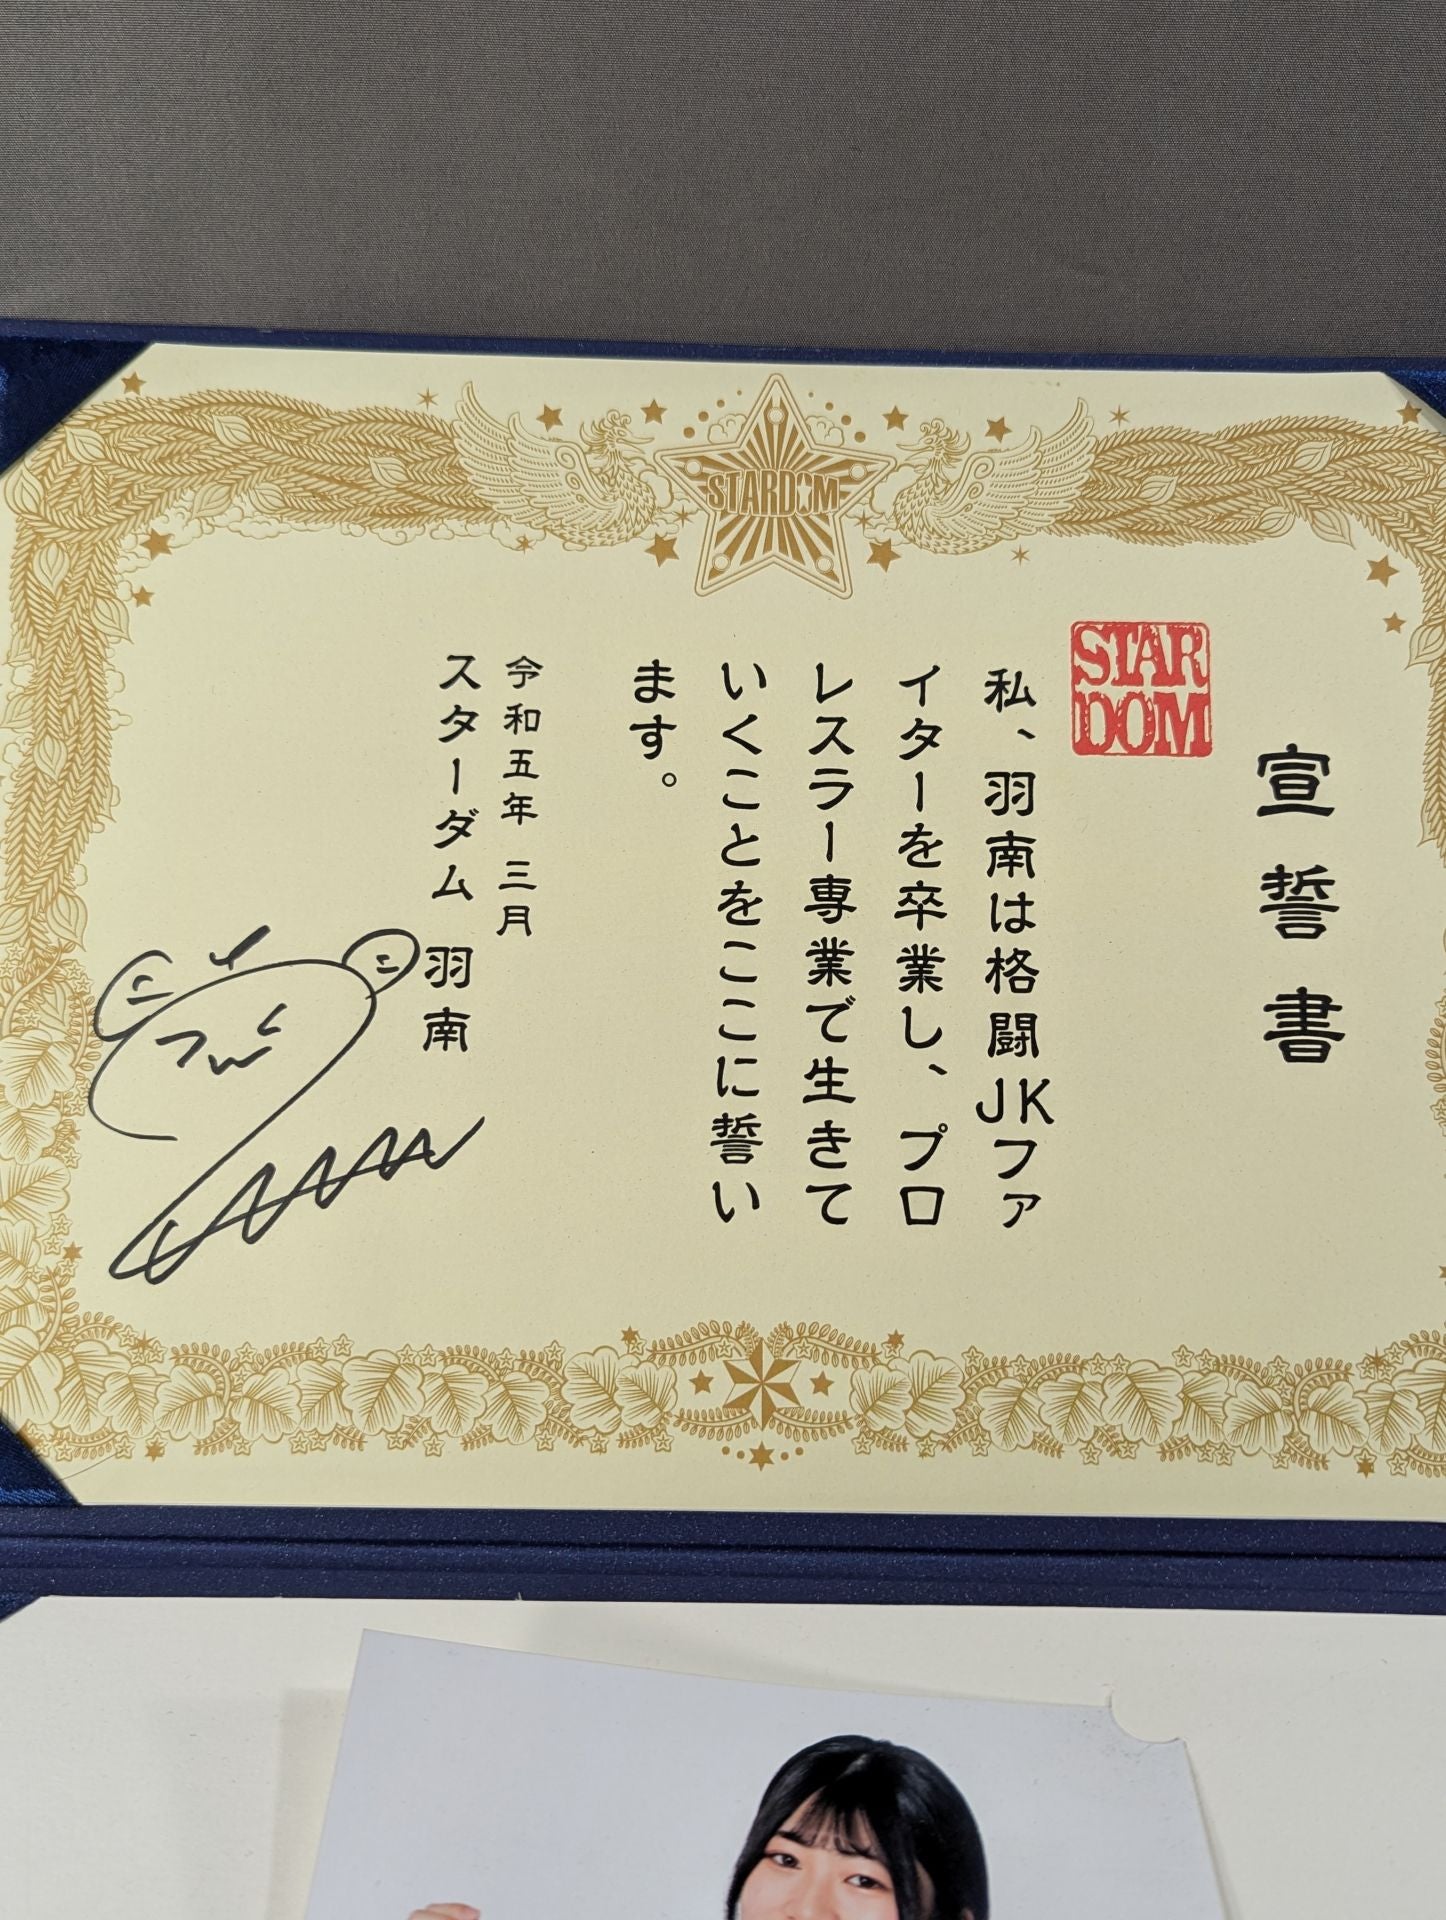 STARDOM
STAR
DOM
宣誓書
私、羽南は格闘JKファ
イターを卒業し、プロ
レスラー専業で生きて
いくことをここに誓い
ます。
令和五年 三月
スターダム 羽南